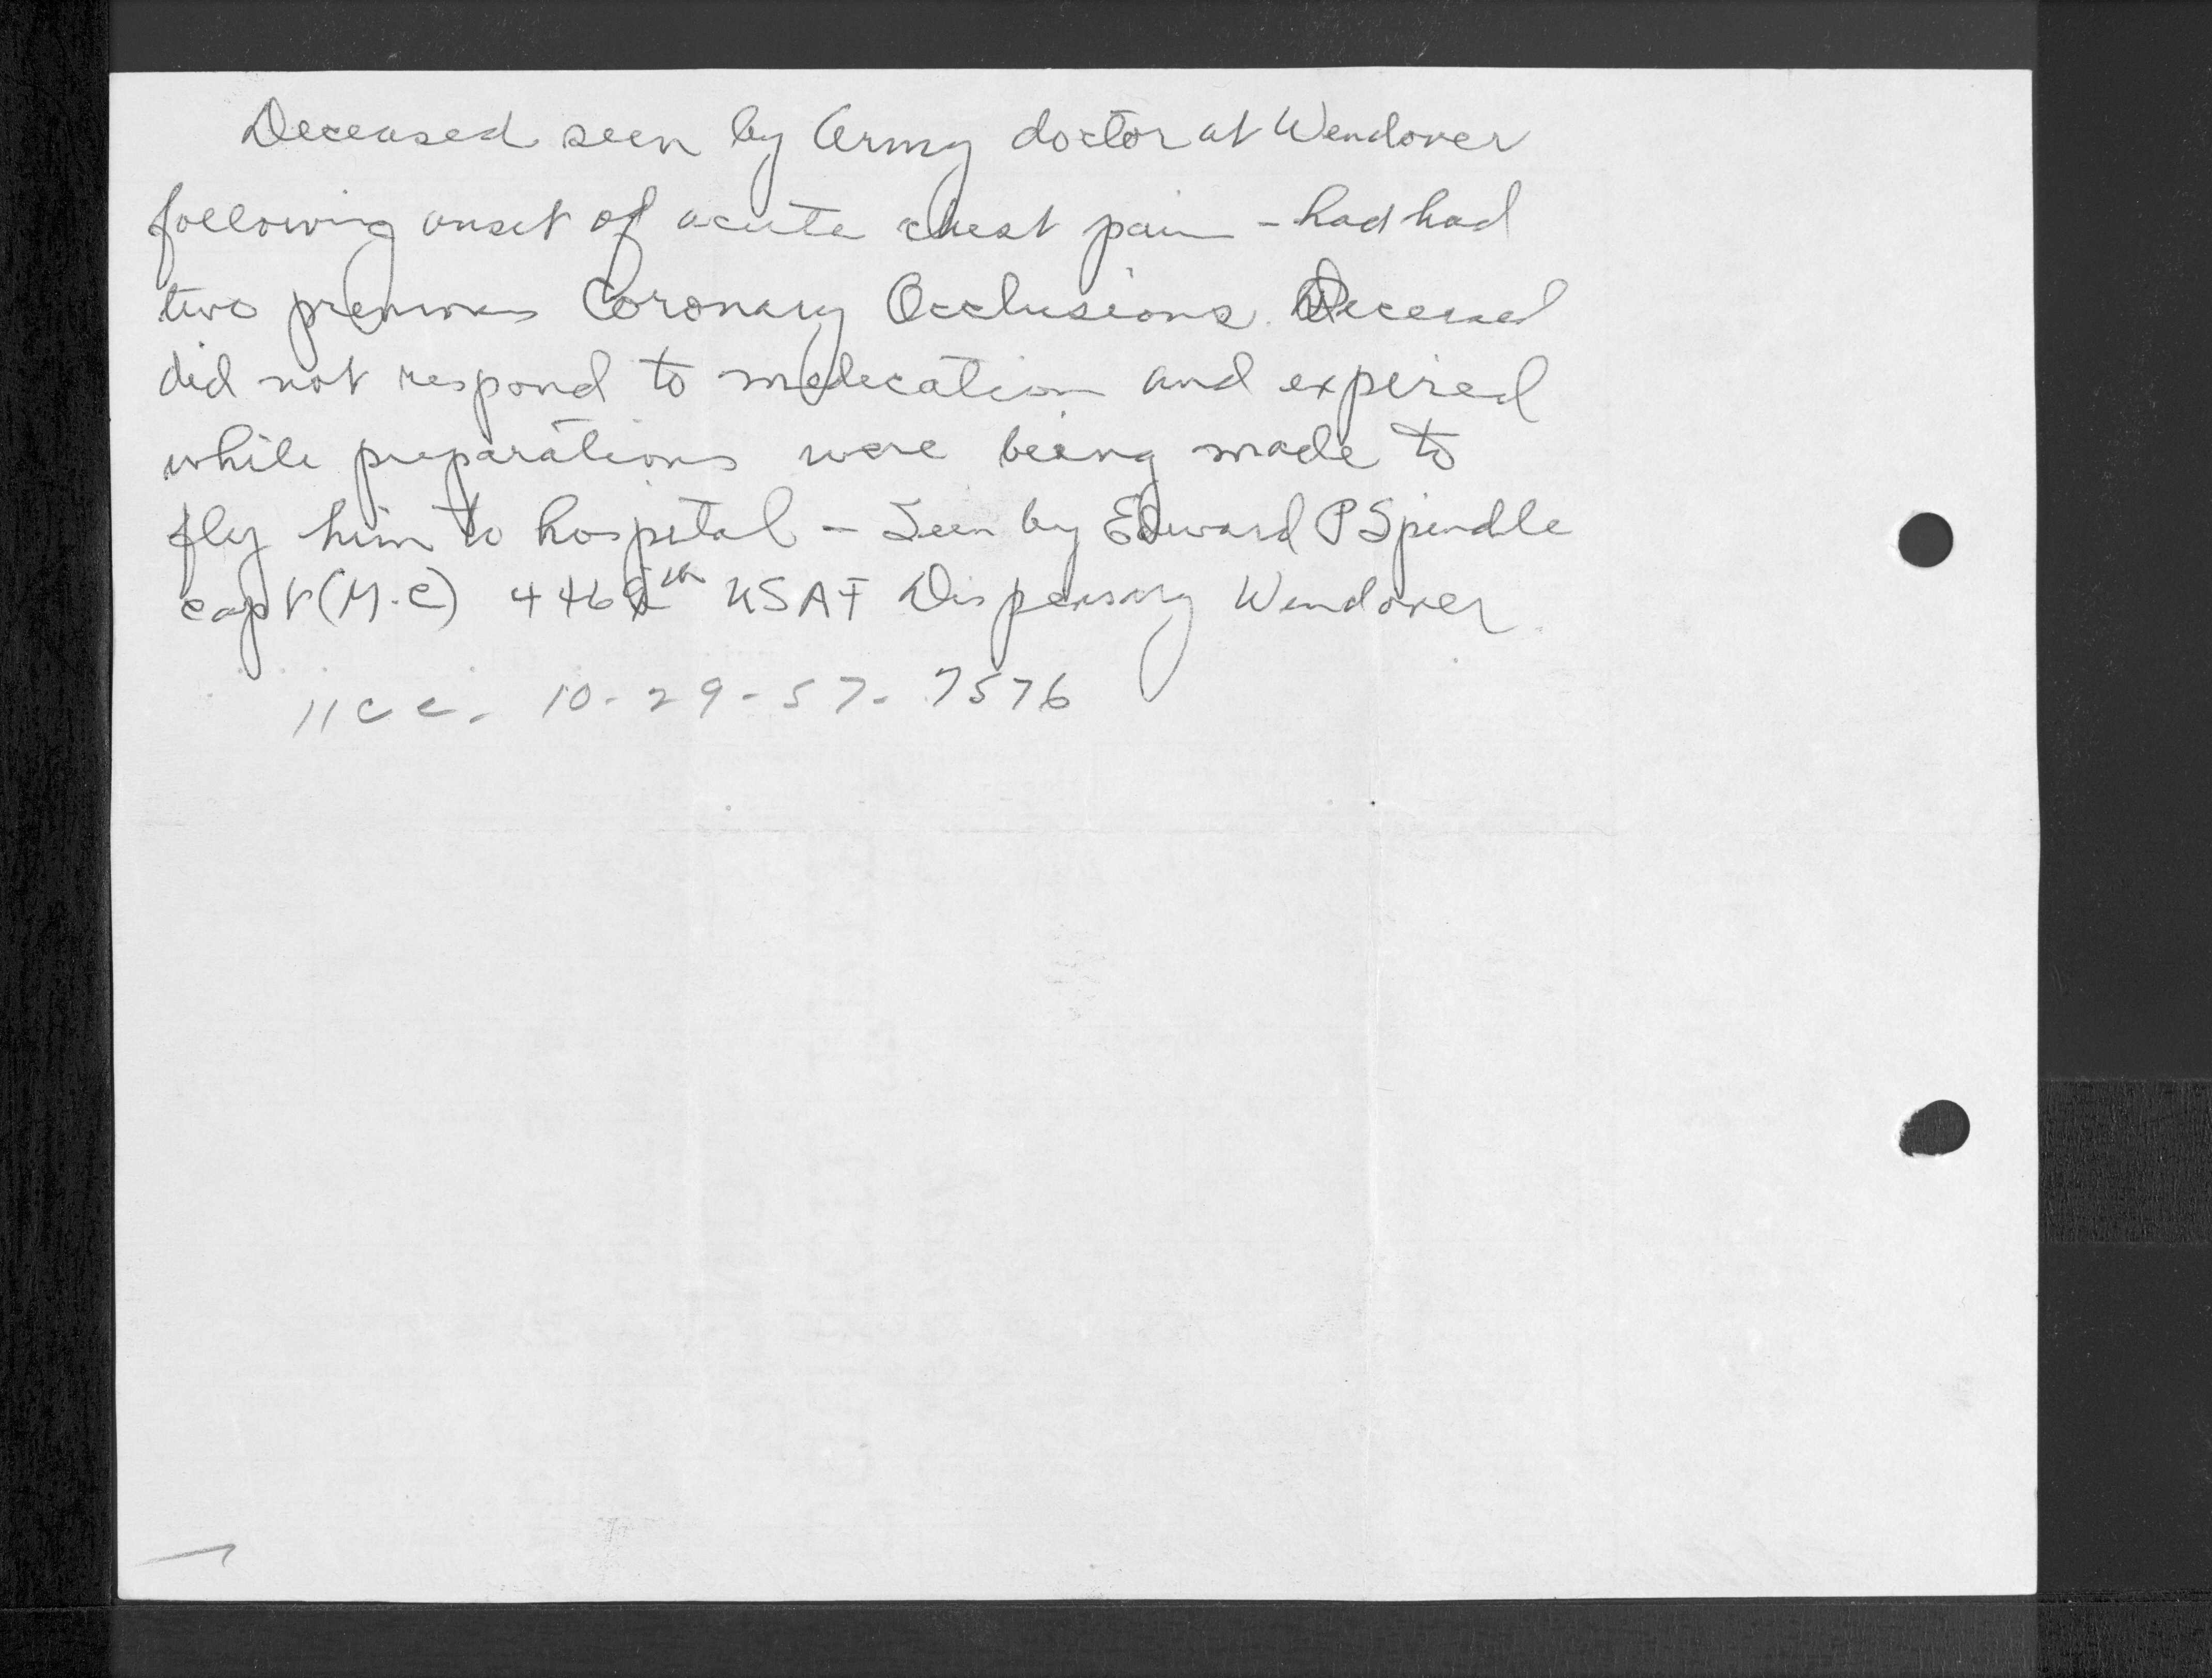 Deceased seen by Army doctor at Wendover
following onset of acute chest pain - had had
two previous Coronary Occlusions. Deceased
did not respond to medication and expired
while preparations were being made to
fly him to hospital - Seen by Edward P Spindle
capt (M.C) USAF Dispensary Wendover
10-29-57- 7576